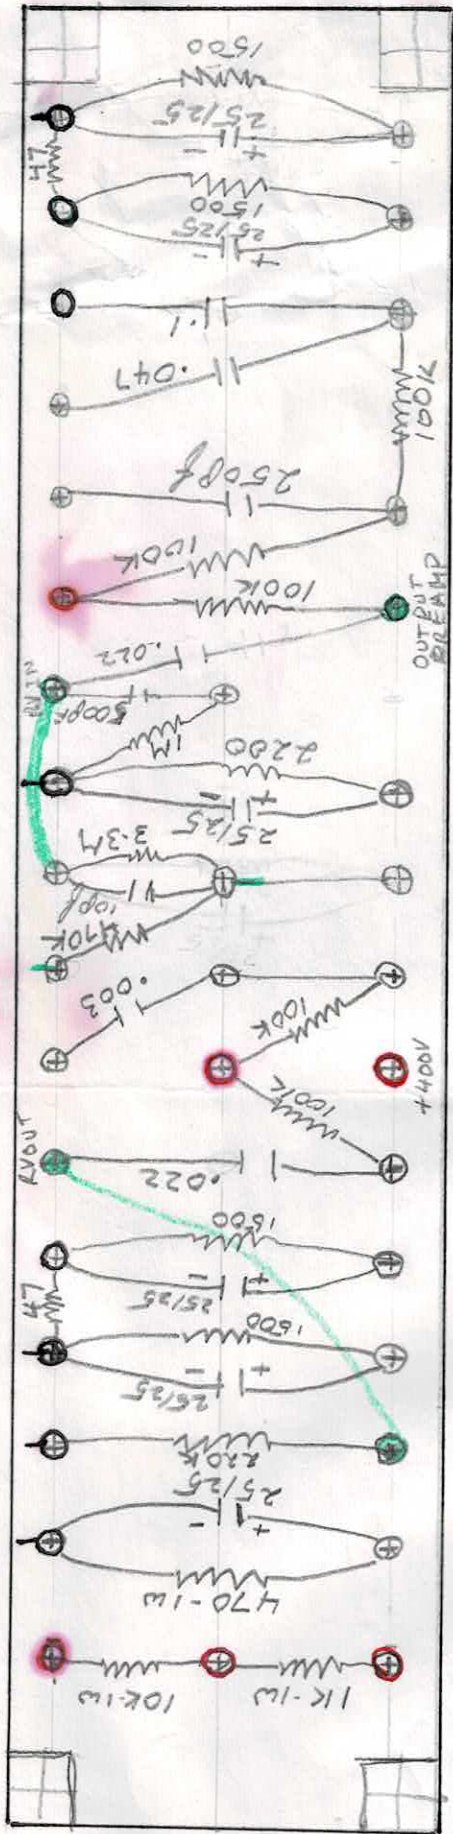 1500
25/25
- +
47
1500
25/25
- +
.1
.047
100K
250Pf
100K
100K
OUTPUT
PREAMP
.022
RV IN
500PF
1M
2200
- +
25/25
3.3M
10pf
470K
.003
100K
+400V
100K
RVOUT
.022
1500
- +
25/25
47
1500
- +
25/25
220K
25/25
- +
470-1W
10K-1W
1K-1W